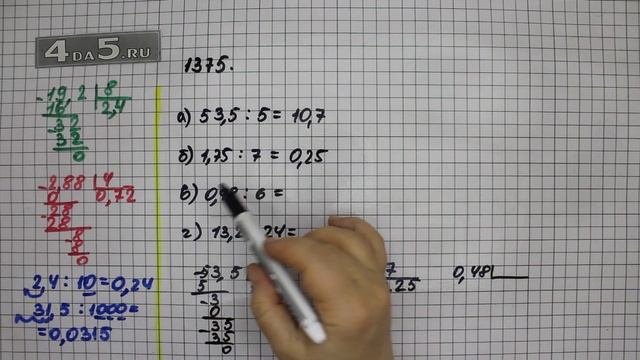 4DA5.RU
1375.
19,2 | 8
16 | 2,4
32
32
0
2,88 | 4
0 | 0,72
28
28
8
8
0
2,4 : 10 = 0,24
31,5 : 1000 =
= 0,0315
а) 53,5 : 5 = 10,7
б) 1,75 : 7 = 0,25
в) 0,48 : 6 =
г) 13,2 24 =
53,5
5
3
0
35
35
0
7
25
0,48